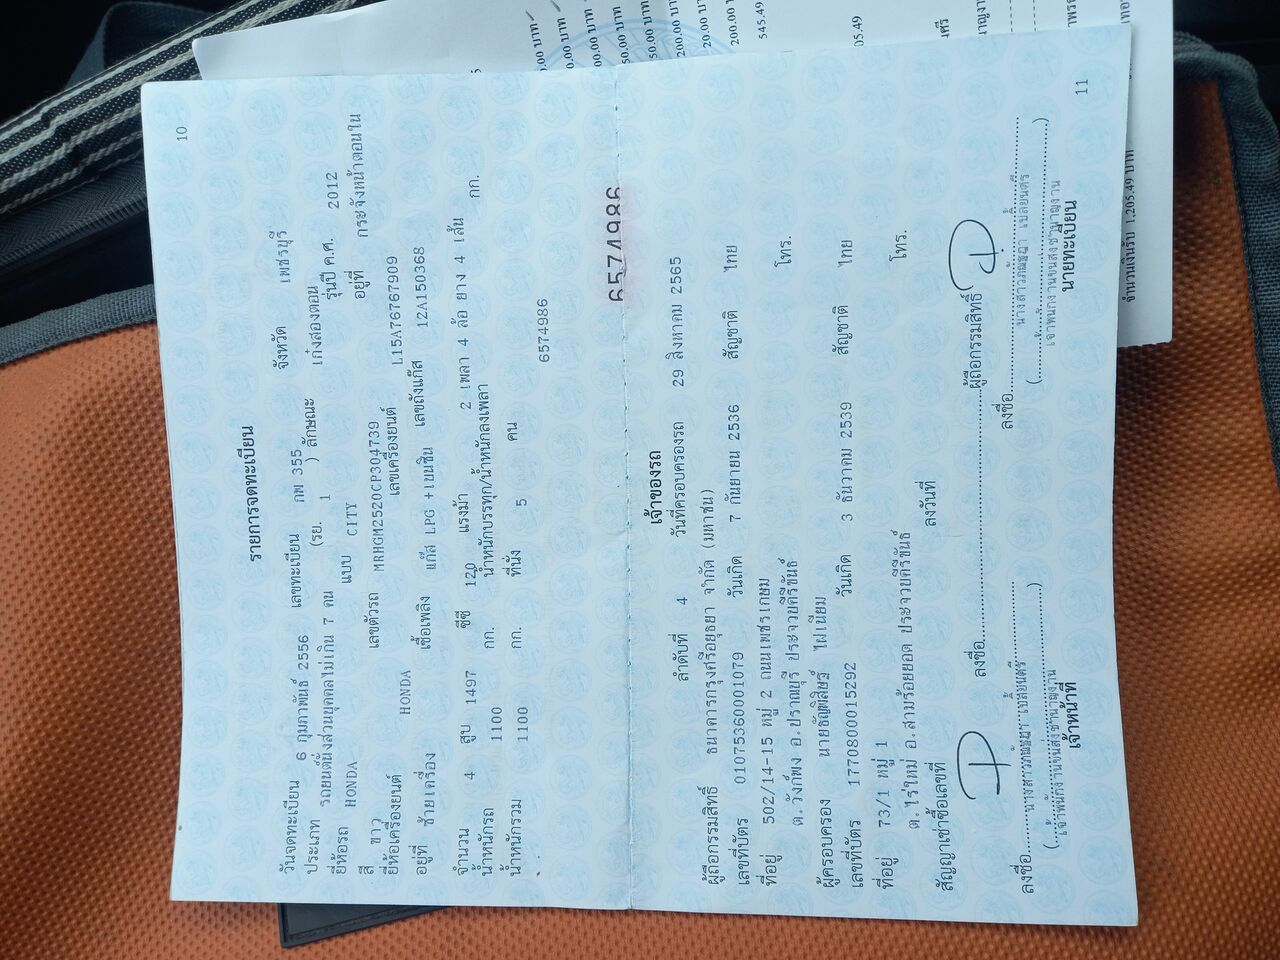 10
รายการจดทะเบียน
วันจดทะเบียน 6 กุมภาพันธ์ 2556 เลขทะเบียน กพ 355 จังหวัด เพชรบุรี
ประเภท รถยนต์นั่งส่วนบุคคลไม่เกิน 7 คน (รย. 1 ) ลักษณะ เก๋งสองตอน
ยี่ห้อรถ HONDA แบบ CITY รุ่นปี ค.ศ. 2012
สี ขาว เลขตัวรถ MRHGM2520CP304739 อยู่ที่ กระจังหน้าตอนใน
ยี่ห้อเครื่องยนต์ HONDA เลขเครื่องยนต์ L15A76767909
อยู่ที่ ซ้ายเครื่อง เชื้อเพลิง แก๊ส LPG +เบนซิน เลขถังแก๊ส 12A150368
จำนวน 4 สูบ 1497 ซีซี 120 แรงม้า 2 เพลา 4 ล้อ ยาง 4 เส้น
น้ำหนักรถ 1100 กก. น้ำหนักบรรทุก/น้ำหนักลงเพลา กก.
น้ำหนักรวม 1100 กก. ที่นั่ง 5 คน
6574986
6574986
เจ้าของรถ
ลำดับที่ 4 วันที่ครอบครองรถ 29 สิงหาคม 2565
ผู้ถือกรรมสิทธิ์ ธนาคารกรุงศรีอยุธยา จำกัด (มหาชน)
เลขที่บัตร 0107536000107​9 วันเกิด 7 กันยายน 2536 สัญชาติ ไทย
ที่อยู่ 502/14-15 หมู่ 2 ถนนเพชรเกษม
ต.วังก์พง อ.ปราณบุรี ประจวบคีรีขันธ์ โทร.
ผู้ครอบครอง ไฝเนียม
เลขที่บัตร 1770800015292 วันเกิด 3 ธันวาคม 2539 สัญชาติ ไทย
ที่อยู่ 73/1 หมู่ 1
ต.ไร่ใหม่ อ.สามร้อยยอด ประจวบคีรีขันธ์ โทร.
สัญญาเช่าซื้อเลขที่ ลงวันที่
ลงชื่อ ผู้ถือกรรมสิทธิ์
ลงชื่อ ลงชื่อ
(เจ้าพนักงานขนส่งชำนาญงาน) (เจ้าพนักงานขนส่งชำนาญงาน)
เจ้าหน้าที่ นายทะเบียน
11
50.00 บาท
200.00 บาท
20.00 บาท
200.00 บาท
545.49
จำนวนเงินรับ 1,205.49 บาท